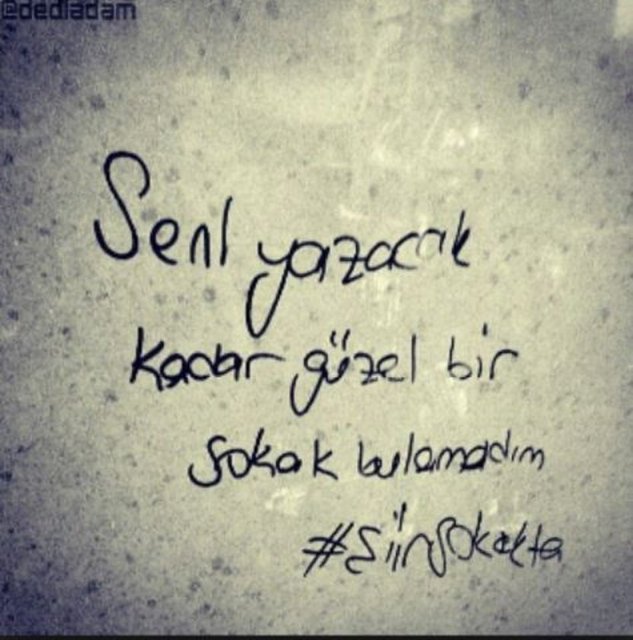 @dediadam
Seni yazacak
kadar güzel bir
sokak bulamadım
#Şiirsokakta